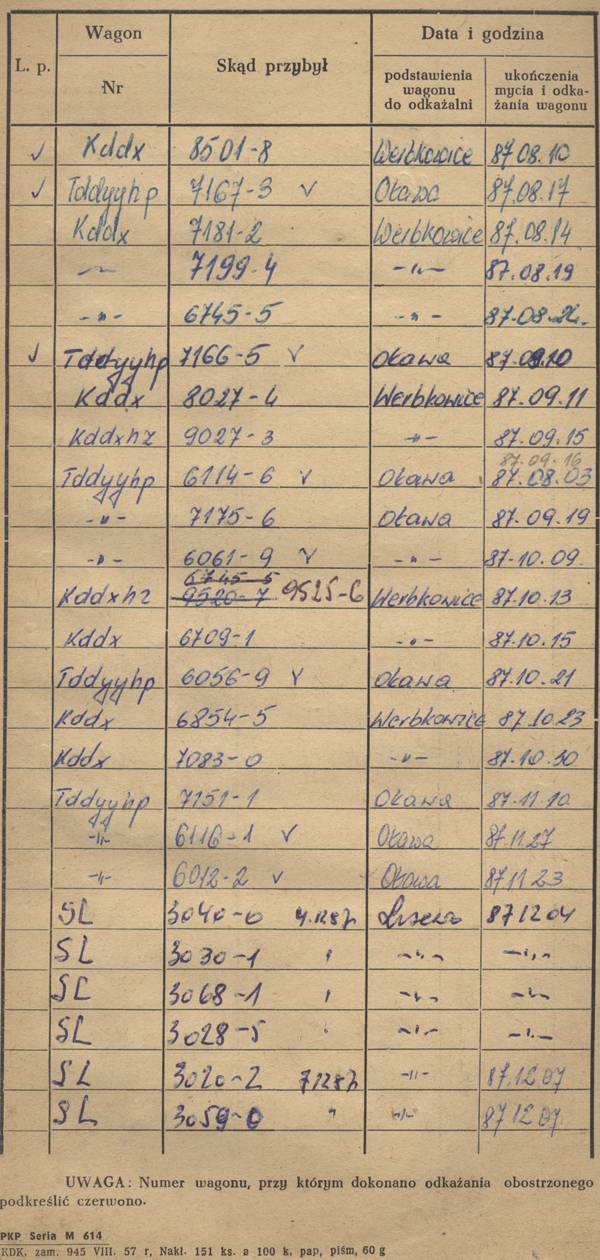 L. p. Wagon Nr Skąd przybył Data i godzina
podstawienia wagonu do odkażalni ukończenia mycia i odka- żania wagonu
✓ Kddx 8501-8 Werbkowice 87.08.10
✓ Tddyyhp 7167-3 ✓ Oława 87.08.17
Kddx 7181-2 Werbkowice 87.08.14
-"- 7199-4 -"- 87.08.19
-"- 6745-5 -"- 87.08.
✓ Tddyyhp 7166-5 ✓ Oława 87.09.10
Kddx 8027-4 Werbkowice 87.09.11
Kddxhz 9027-3 -"- 87.09.15
87.09.16
Tddyyhp 6114-6 ✓ Oława 87.08.03
-"- 7175-6 Oława 87.09.19
-"- 6061-9 ✓ -"- 87-10.09.
6745-5
Kddxhz 9520-7 9525-6 Werbkowice 87.10.13
Kddx 6709-1 -"- 87.10.15
Tddyyhp 6056-9 ✓ Oława 87.10.21
Kddx 6854-5 Werbkowice 87.10.23
Kddx 7083-0 -"- 87.10.30
Tddyyhp 7151-1 Oława 87-11.10
-"- 6116-1 ✓ Oława 87.11.27
-"- 6012-2 ✓ Oława 87 11 23
SL 3040-0 4.12.87 87 12 04
SL 3030-1 " -"- -"-
SL 3068-1 " -"- -"-
SL 3028-5 " -"- -"-
SL 3020-2 7.12.87 -"- 87.12 07
SL 3059-0 " -"- 87 12 07
UWAGA: Numer wagonu, przy którym dokonano odkażania obostrzonego
podkreślić czerwono.
PKP Seria M 614
KDK. zam. 945 VIII. 57 r, Nakł. 151 ks. a 100 k, pap, piśm, 60 g